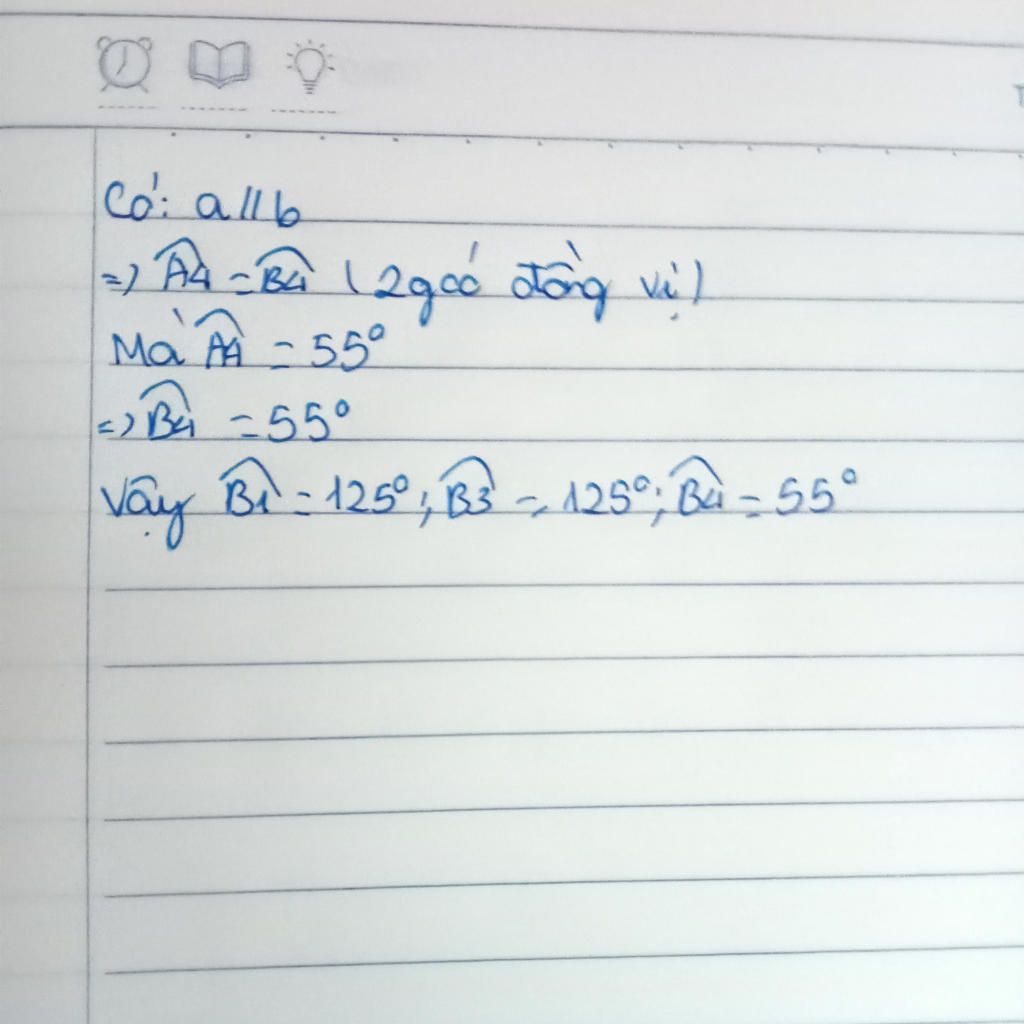 Có: a // b
=> Â4 = B̂4 ( 2 góc đồng vị )
Mà Â4 = 55°
=> B̂4 = 55°
Vậy B̂1 = 125° ; B̂3 = 125° ; B̂4 = 55°